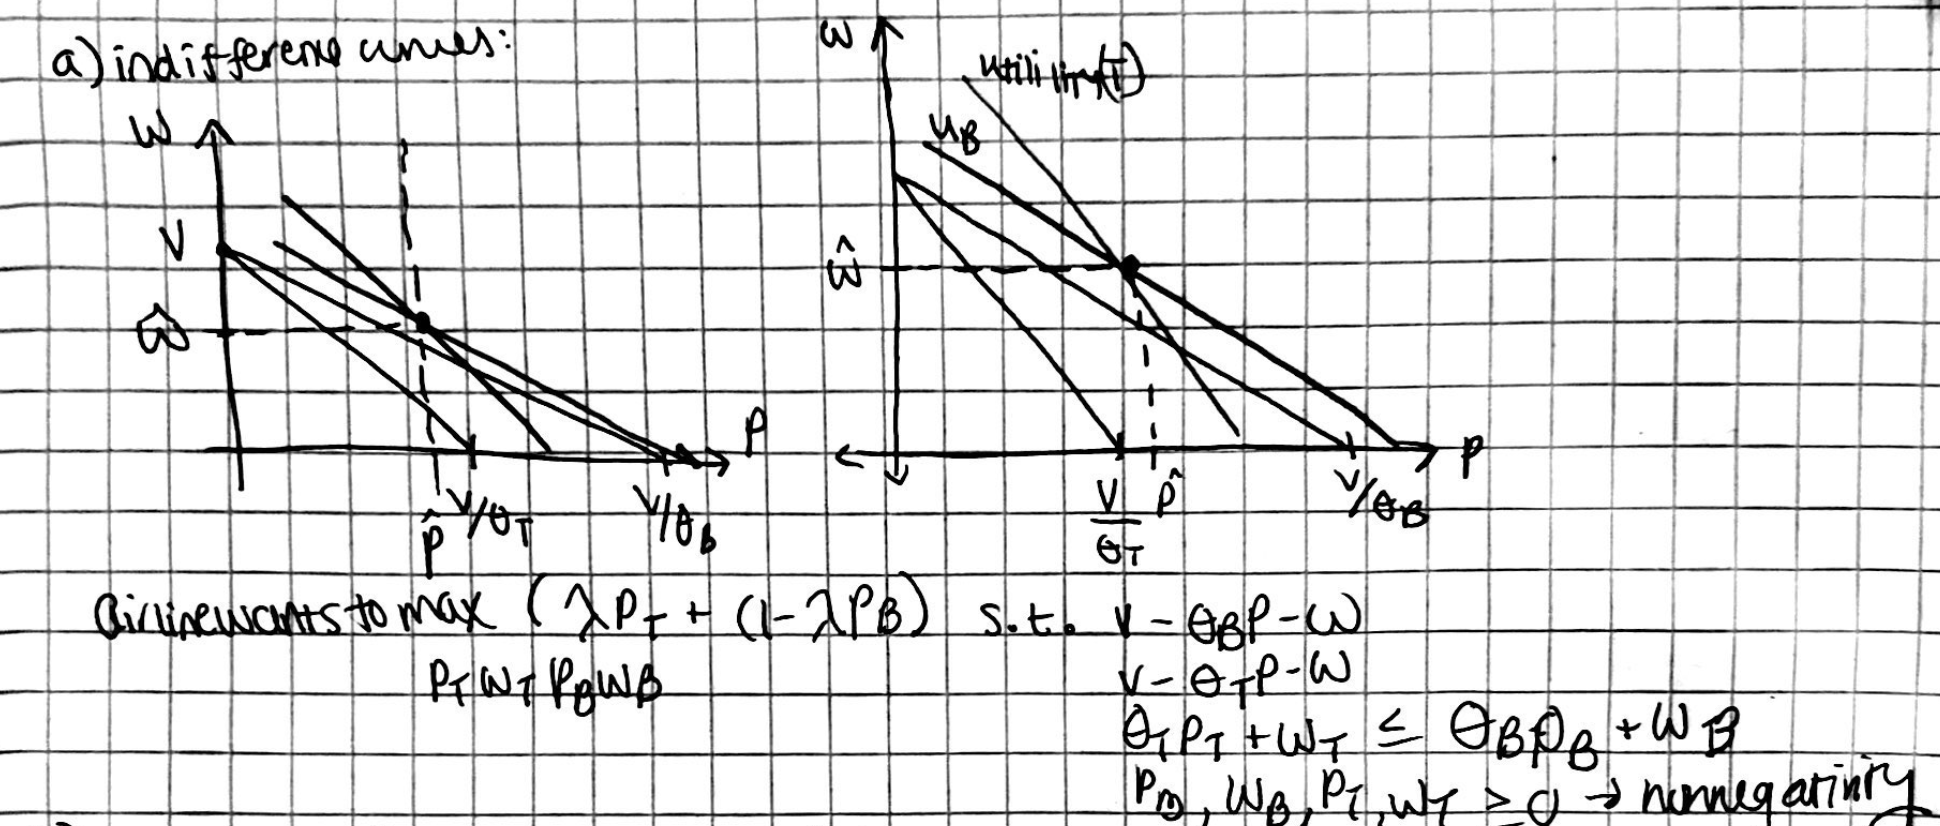 a) indifference curves:
W
V
ŵ
p̂
V/θ_T
V/θ_B
P
ω
utility(T)
u_B
ŵ
V/θ_T
p̂
V/θ_B
P
airline wants to max (λP_T + (1-λP_B) s.t. V - θ_BP - W
P_T W_T P_B W_B
V - θ_TP - W
θ_TP_T + W_T ≤ θ_BP_B + W_B
P_B, W_B, P_T, W_T ≥ 0 → nonnegativity